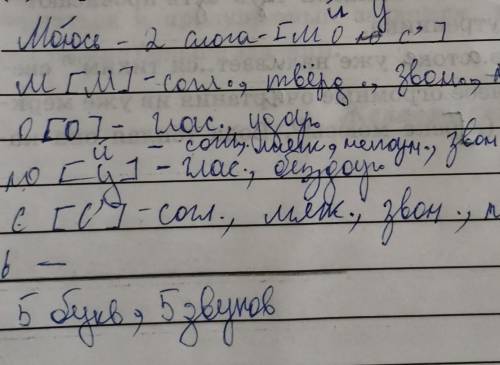 й у
Моюсь - 2 слога - [м о ю с’]
м [м] - согл., твёрд., звон.,
о [о] - глас., удар.
й - согл., мягк., непарн., звон
ю [у] - глас., бездар.
с [с’] - согл., мягк., звон., п
ь —
5 букв, 5 звуков